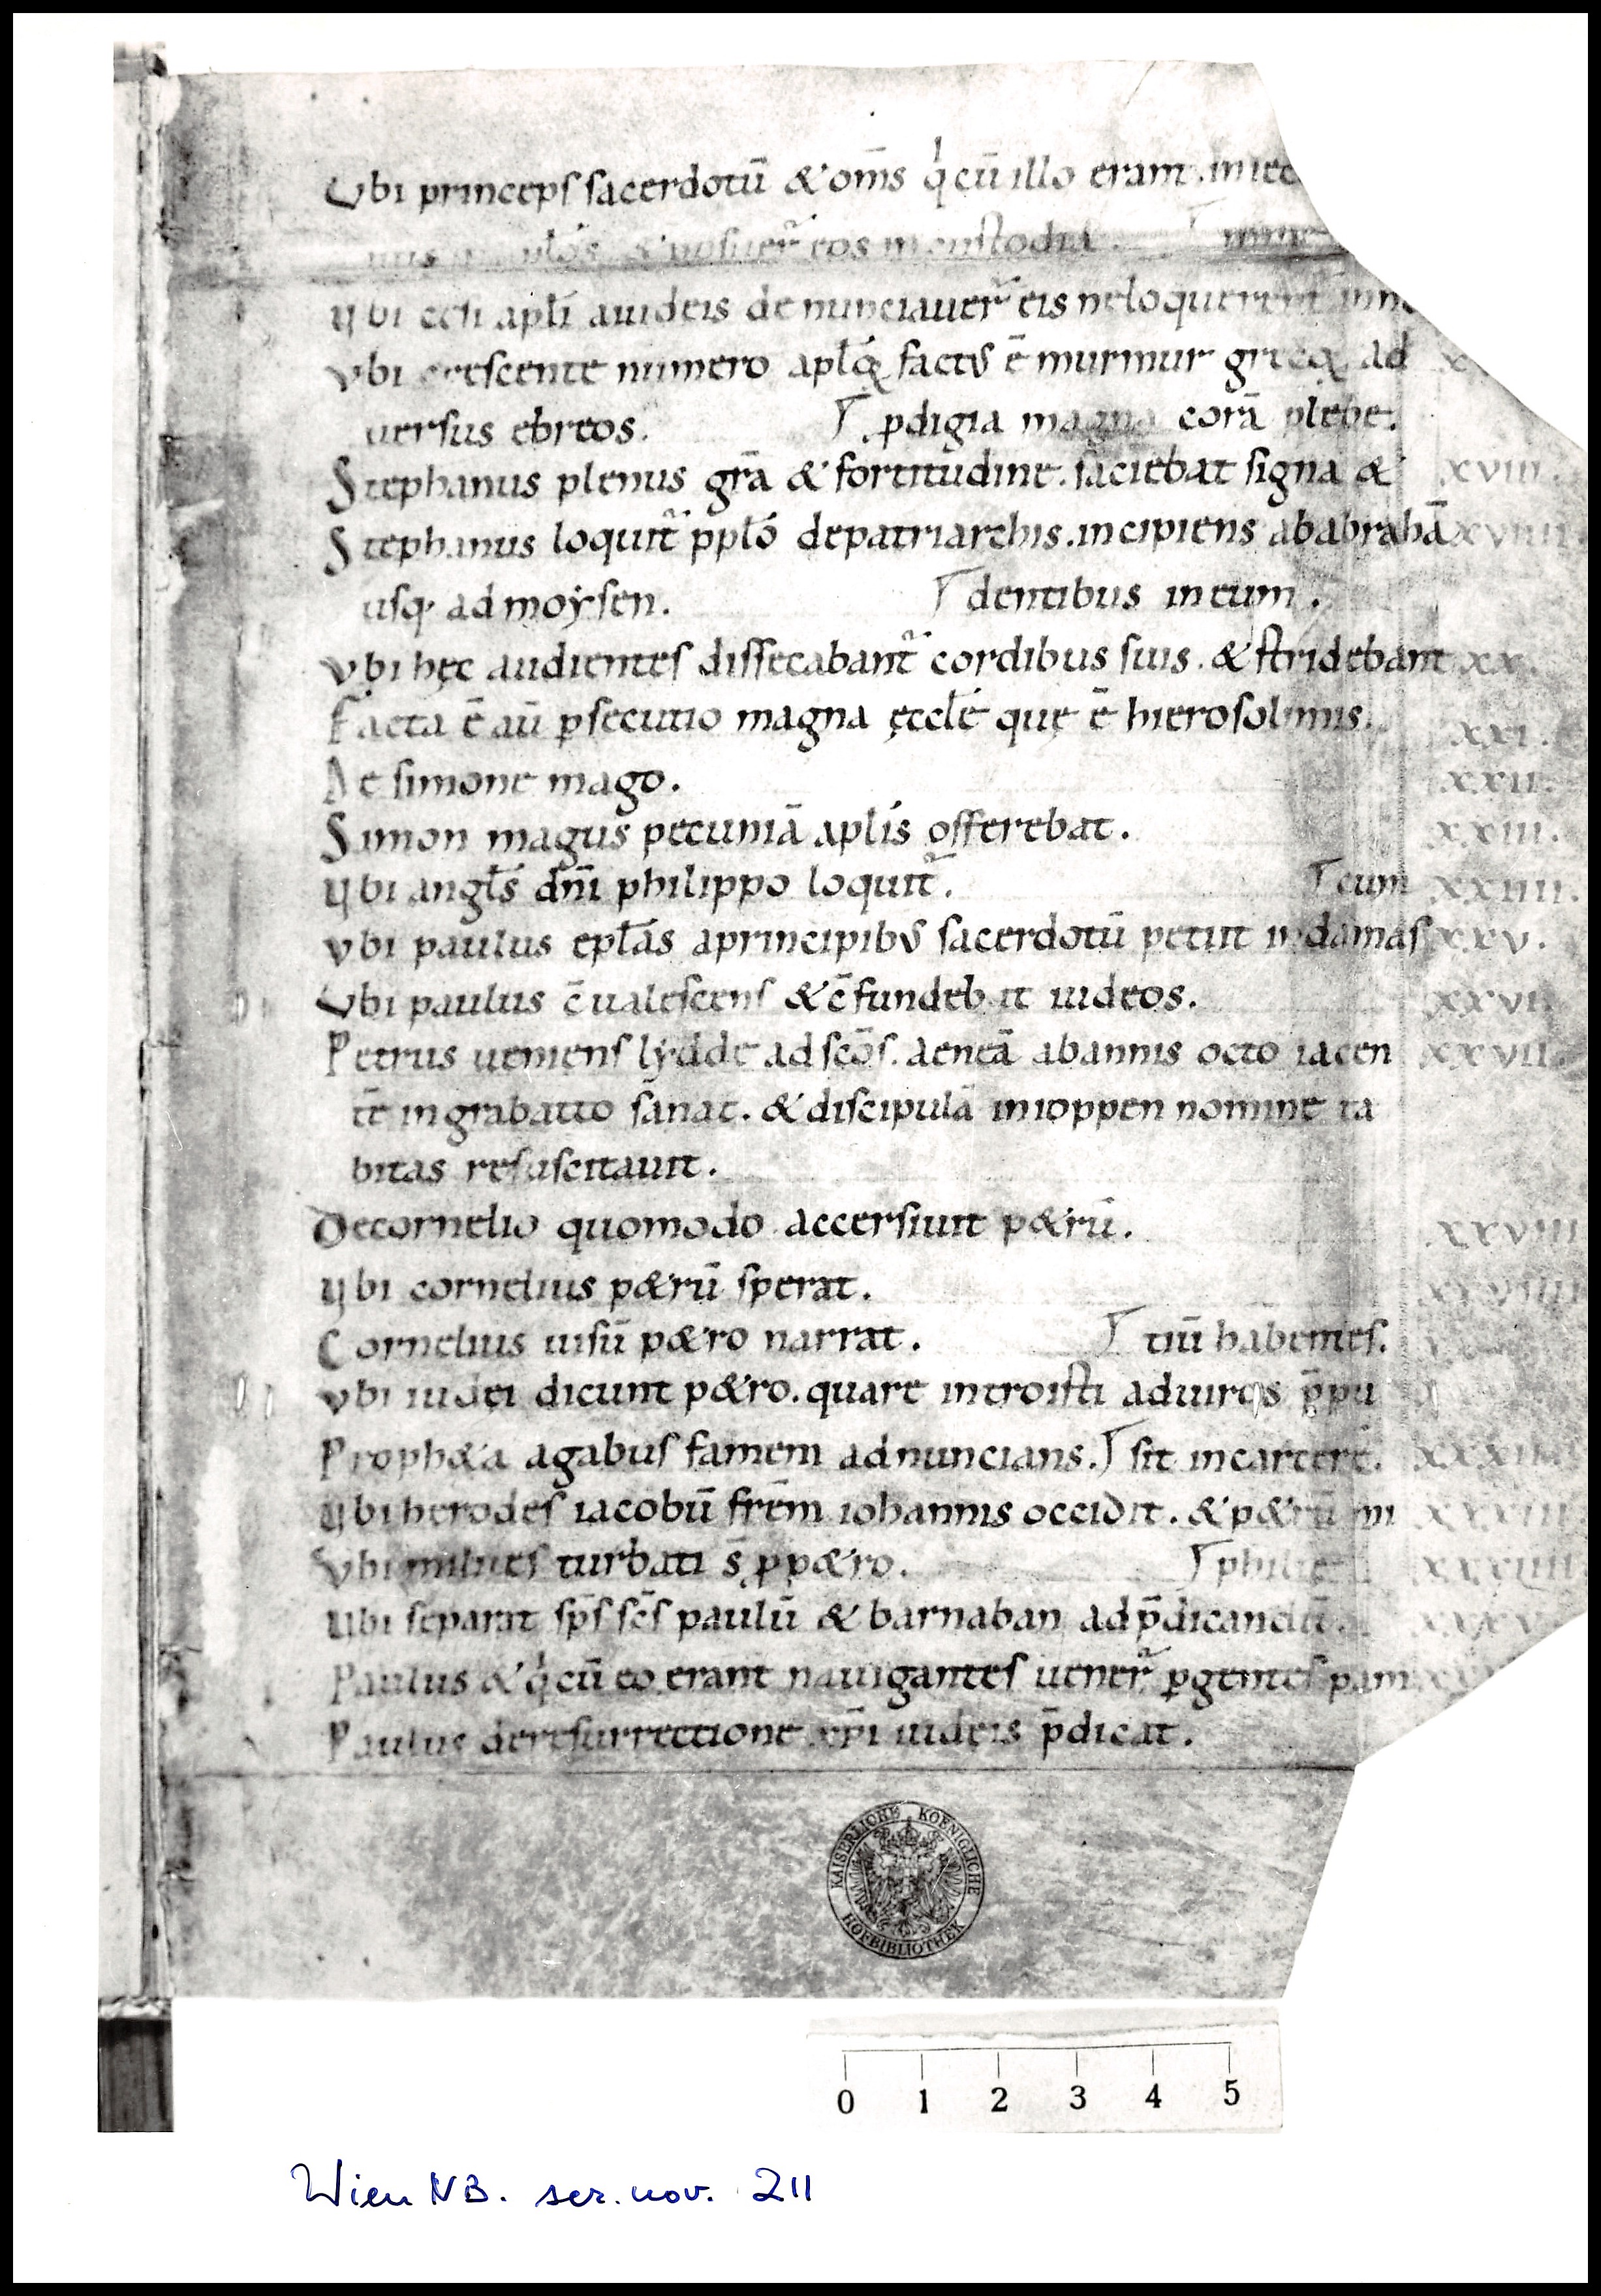 Vbi princeps sacerdotū & om̄s q cū illo erant. iniec
& posuer eos in custodiā.
Vbi apli a iudeis denunciauer eis ne loquerent
Vbi crescente numero aplōꝝ factus ē murmur grecoꝝ ad
uersus ebreos. ꝓdigia magna corā plebe.
Stephanus plenus grā & fortitudine. faciebat signa & XVIII.
Stephanus loquit̄ pplō de patriarchis. incipiens ab abrahā XVIIII.
usq. ad moysen. dentibus in eum.
Vbi hęc audientes dissecabant̄ cordibus suis. & stridebant XX.
Facta ē aū ꝑsecutio magna ęccle que ē hierosolimis. XXI.
De simone mago. XXII.
Simon magus pecuniā aplis offerebat. XXIII.
Vbi angls dn̄i philippo loquit̄. cum XXIIII.
Vbi paulus eplas a principibus sacerdotū petiit in damas XXV.
Vbi paulus c̄ualescens & c̄fundebat iudeos. XXVI.
Petrus ueniens lydde ad scōs. aeneā ab annis octo iacen XXVII.
tē in grabatto sanat. & discipulā in ioppen nomine ta
bitas resuscitauit.
De cornelio quomodo accersiuit p&rū. XXVIII
Vbi cornelius p&rū sperat. XXVIIII
Cornelius uisū p&ro narrat. tiū habentes.
Vbi iudei dicunt p&ro. quare introisti ad uiros p̄pu
Proph&a agabus famem adnuncians. sit in carcere.
Vbi herodes iacobū frēm iohannis occidit. & p&rū mi XXXIII
Vbi milites turbati s ꝓ p&ro. XXXIIII
Vbi separat sp̄s sc̄s paulū & barnaban ad p̄dicandū. XXXV
Paulus & q cū eo erant nauigantes uener ꝑgentes pam
Paulus de resurrectione xp̄i iudeis p̄dicat.
KAISERLICHE KOENIGLICHE HOFBIBLIOTHEK
0 1 2 3 4 5
Wien NB. ser. nov. 211